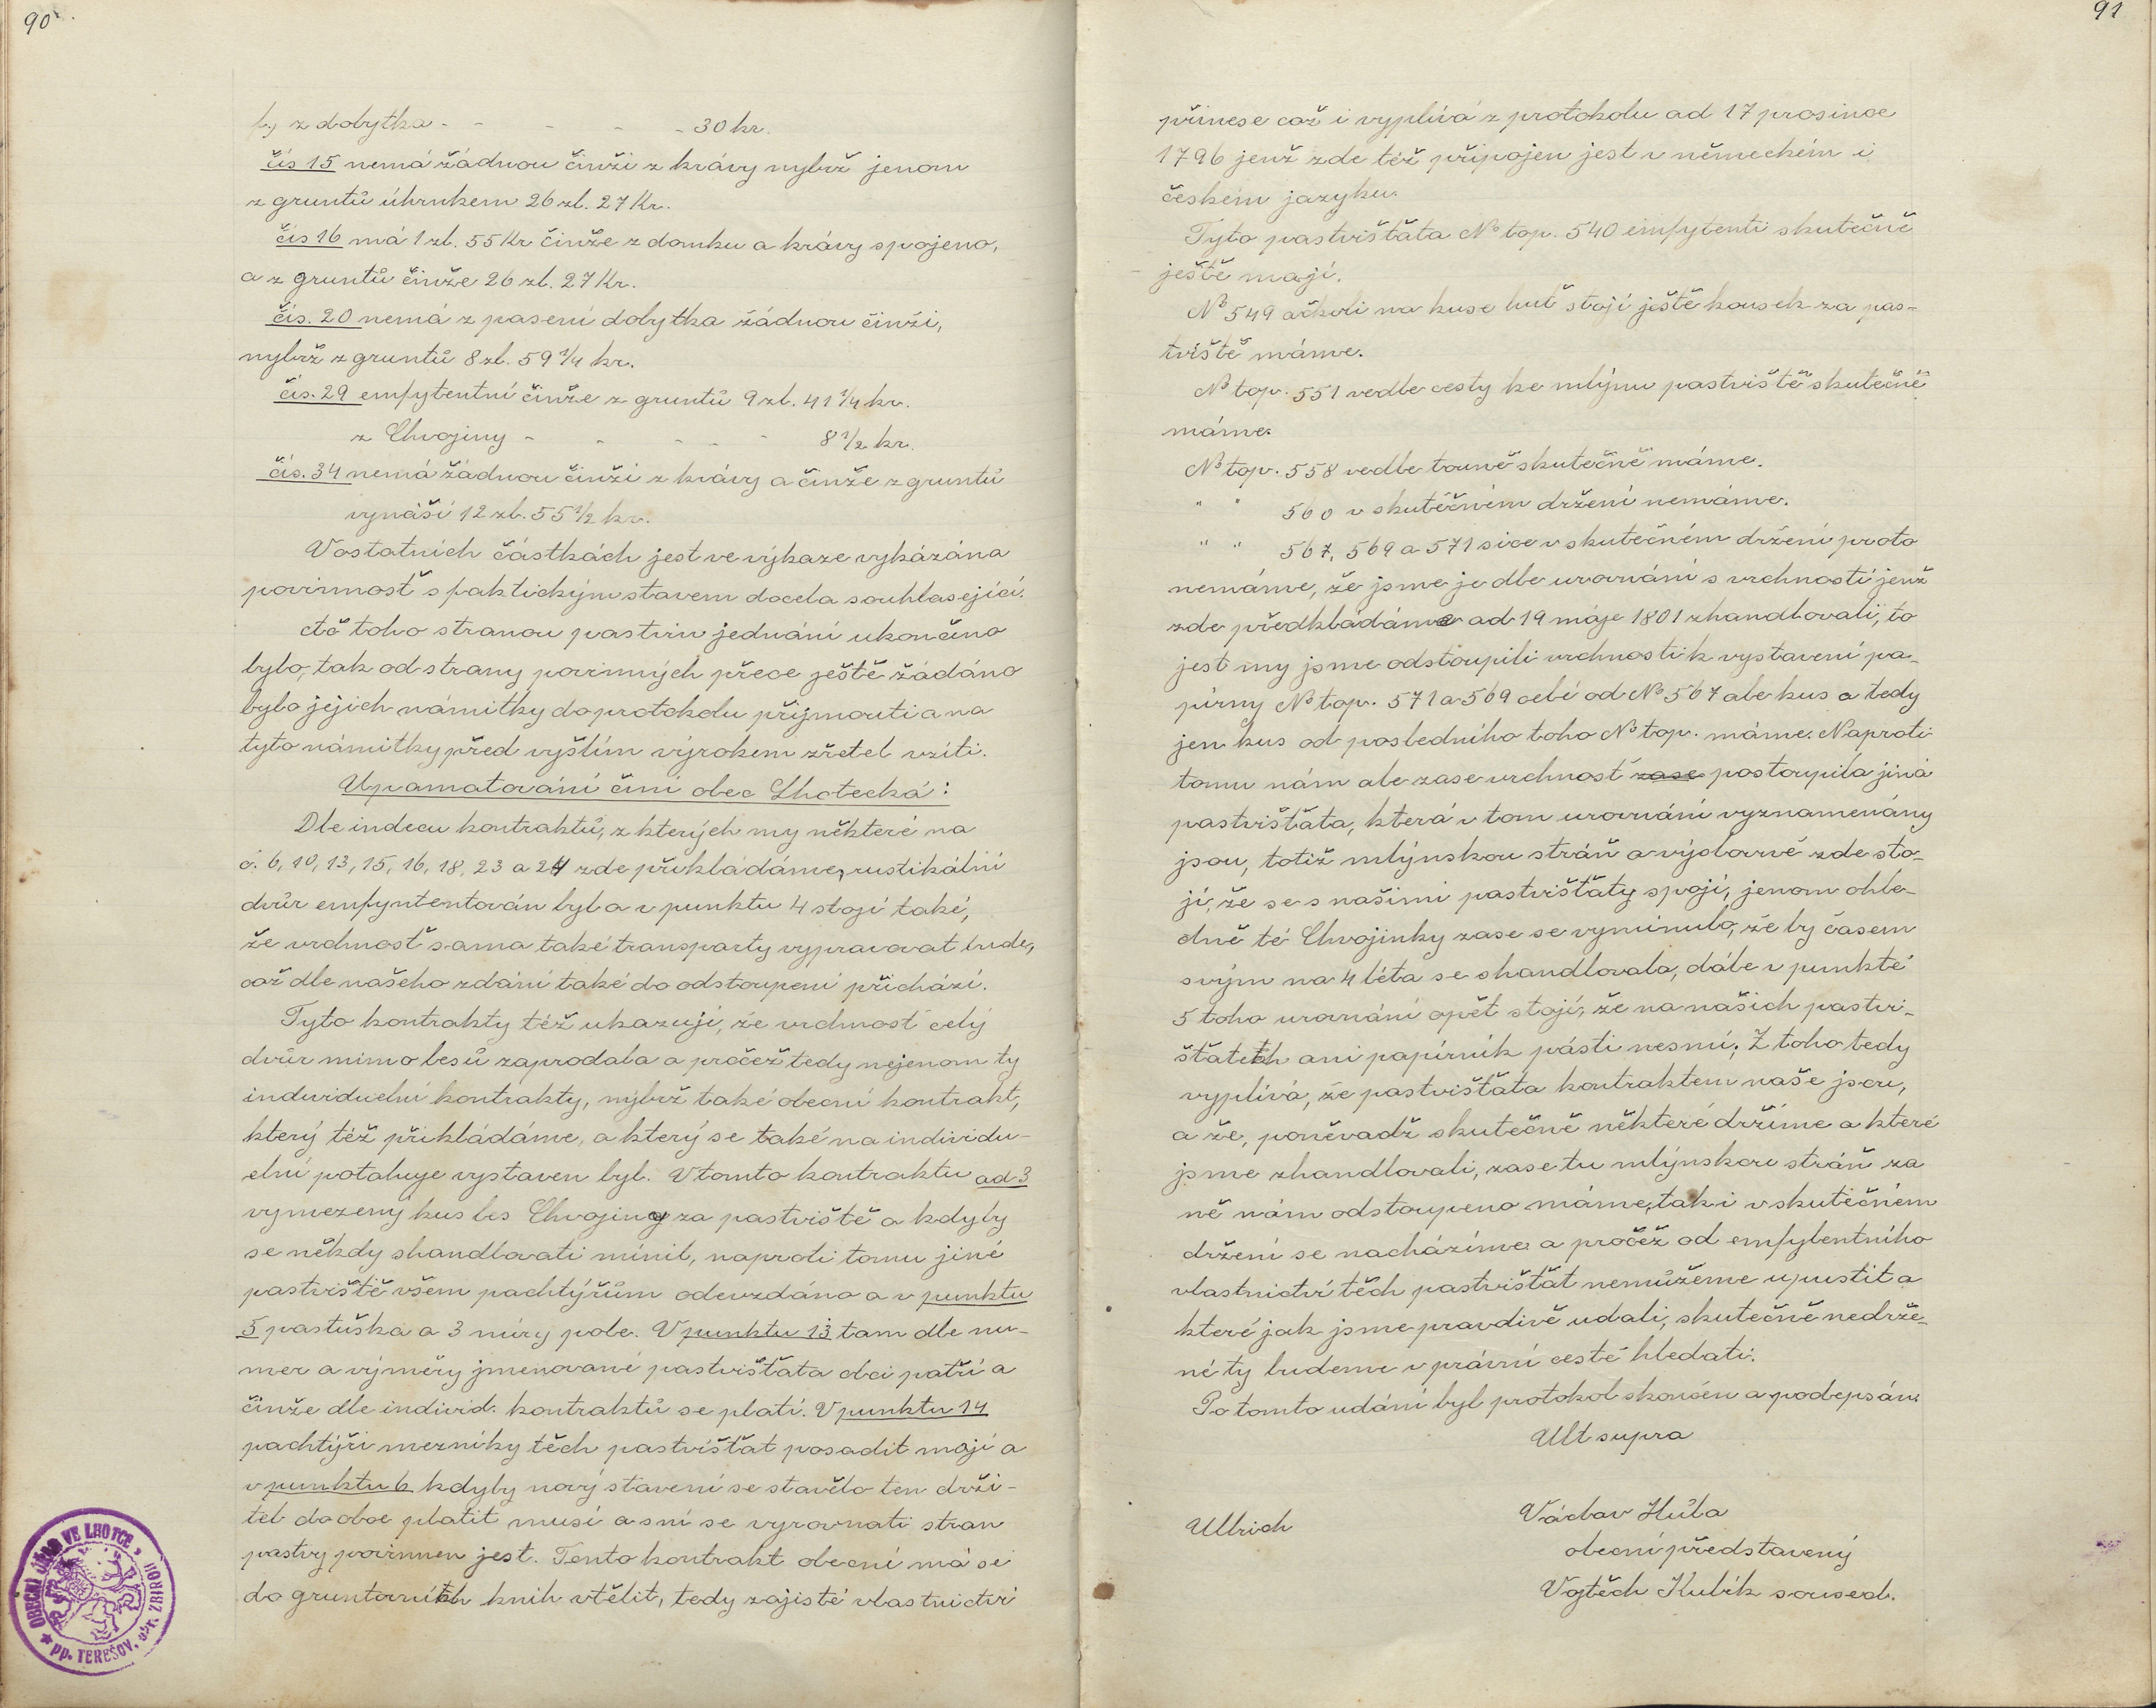 90
b.) z dobytka - - - - - 30 kr.
čís 15 nemá žádnou činži z krávy nybrž jenom
z gruntů úhrnkem 26 zl. 27 Kr.
čís 16 má 1 zl. 55 Kr činže z domku a krávy spojeno,
a z gruntů činže 26 zl. 27 Kr.
čís. 20 nemá z pasení dobytka žádnou činži,
nybrž z gruntů 8 zl. 59 1/4 kr.
čís. 29 emfytentní činže z gruntů 9 zl. 41 1/4 kr.
z Chvojiny - - - - - 8 1/2 kr.
čís. 34 nemá žádnou činži z krávy a činže z gruntů
vynáší 12 zl. 55 1/2 kr.
V ostatních částkách jest ve výkaze vykázána
povinnosť s faktickým stavem docela souhlasející.
Ač toho stranou pastvin jednání ukončeno
bylo, tak od strany povinných přece ještě žádáno
bylo jejich námitky do protokolu přijmouti a na
tyto námitky před vyšším výrokem zřetel vzíti.
Upamatování činí obec Lhotecká:
Dle indecu kontraktů, z kterých my některé na
č. 6, 10, 13, 15, 16, 18, 23 a 24 zde přikládáme, rustikální
dvůr emfyntentován byl a v punktu 4 stojí také,
že vrchnosť sama také transporty vypravovat bude,
což dle našeho zdání také do odstoupení přichází.
Tyto kontrakty též ukazují, že vrchnosť celý
dvůr mimo lesů zaprodala a pročež tedy nejenom ty
individuelní kontrakty, nýbrž také obecní kontrakt,
který též přikládáme, a který se také na individu-
elní potahuje vystaven byl. V tomto kontraktu ad 3
vymezený kus les Chvojiny za pastviště a kdyby
se někdy shandlovati mínil, naproti tomu jiné
pastviště všem pachtýřům odevzdáno a v punktu
5 pastuška a 3 míry pole. V punktu 13 tam dle nu-
mer a výměry jmenované pastvišťata obci patří a
činže dle individ. kontraktů se platí. V punktu 14
pachtýři mezníky těch pastvišťat posadit mají a
v punktu 6 kdyby nový stavení se stavělo ten drži-
tel do obce platit musí a sní se vyrovnati stran
pastvy povinnen jest. Tento kontrakt obecní má se
do gruntovních knih vtělit, tedy zajisté vlastnictví
OBECNÍ ÚŘAD VE LHOTCE
pp. TEREŠOV, okr. ZBIROH
91
přinese což i vyplívá z protokolu ad 17 prosince
1796 jenž zde též připojen jest v německém i
českém jazyku.
Tyto pastvišťata No top. 540 emfytenti skutečně
ještě mají.
No 549 ačkoli na kuse huť stojí ještě kousek za pas-
tviště máme.
No top. 551 vedle cesty ke mlýnu pastviště skutečně
máme.
No top. 558 vedle touně skutečně máme.
" " 560 v skutečném držení nemáme.
" " 567, 569 a 571 sice v skutečném držení proto
nemáme, že jsme je dle urovnání s vrchností jenž
zde předkládáme ad 19 máje 1801 zhandlovali, to
jest my jsme odstoupili vrchnosti k vystavení pa-
pírny No top. 571 a 569 celé od No 567 ale kus a tedy
jen kus od posledního toho No top. máme. Naproti
tomu nám ale zase vrchnosť zase postoupila jiná
pastvišťata, která v tom urovnání vyznamenány
jsou, totiž mlýnskou stráň a výslovně zde sto-
jí, že se s našimi pastvišťaty spojí, jenom ohle-
dně té Chvojinky zase se vyminulo, že by časem
svým na 4 léta se shandlovala, dále v punktě
5 toho urovnání opět stojí, že na našich pastvi-
šťatech ani papírník pásti nesmí; Z toho tedy
vyplívá, že pastvišťata kontraktem naše jsou,
a že, poněvadž skutečně některé držíme a které
jsme zhandlovali, zase tu mlýnskou stráň za
ně nám odstoupeno máme, tak i v skutečném
držení se nacházíme a pročež od emfytentního
vlastnictví těch pastvišťat nemůžeme upustit a
které jak jsme pravdivě udali, skutečně nedrže-
né ty budeme v právní cestě hledati.
Po tomto udání byl protokol skončen a podepsán.
Ult supra
Ullrich
Václav Hůla
obecní představený
Vojtěch Kubík soused.